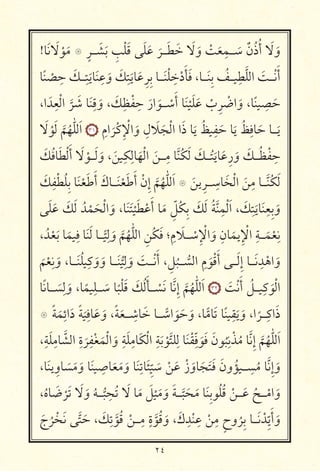 وَلَا أُذُنٌ سَمِعَتْ وَلَا خَطَرَ عَلَى قَلْبِ بَشَرٍ ۞ مَوْلَانَا!
أَنْتَ اللَّطِيفُ بِنَا، فَأَدْخِلْنَا بِرِعَايَتِكَ وَعِنَايَتِكَ حِصْنًا
حَصِينًا، وَاضْرِبْ عَلَيْنَا أَسْوَارَ حِفْظِكَ، وَقِنَا شَرَّ الْعِدَا،
يَا حَافِظُ يَا حَفِيظُ يَا ذَا الْجَلَالِ وَالْإِكْرَامِ ٣١ اَللّٰهُمَّ لَوْلَا
حِفْظُكَ وَرِعَايَتُكَ لَكُنَّا مِنَ الْهَالِكِينَ، وَلَوْلَا أَلْطَافُكَ
لَكُنَّا مِنَ الْخَاسِرِينَ ۞ اَللّٰهُمَّ إِنْ أَطَعْنَاكَ أَطَعْنَا بِلُطْفِكَ
وَبِعِنَايَتِكَ، الْمِنَّةُ لَكَ بِكُلِّ مَا أَعْطَيْتَنَا، وَالْحَمْدُ لَكَ عَلَى
نِعْمَةِ الْإِيمَانِ وَالْإِسْلَامِ؛ فَكُنِ اللّٰهُمَّ وَلِيًّا لَنَا فِيمَا بَعْدُ،
وَاهْدِنَا إِلَى أَقْوَمِ السُّبُلِ، أَنْتَ وَلِيُّنَا، وَوَكِيلُنَا، وَنِعْمَ
الْوَكِيلُ أَنْتَ ٣٢ اَللّٰهُمَّ إِنَّا نَسْأَلُكَ قَلْبًا سَلِيمًا، وَلِسَانًا
ذَاكِرًا، وَيَقِينًا تَامًّا، وَحَوَاسًّا خَاشِعَةً، وَعَافِيَةً دَائِمَةً ۞
اَللّٰهُمَّ إِنَّا مُذْنِبُونَ فَوَفِّقْنَا لِلتَّوْبَةِ الْكَامِلَةِ وَالْمَغْفِرَةِ الشَّامِلَةِ،
وَإِنَّا مُسِيؤُونَ فَتَجَاوَزْ عَنْ سَيِّئَاتِنَا وَمَعَاصِينَا وَمَسَاوِينَا،
وَامْحُ عَنْ قُلُوبِنَا مَحَبَّةَ مَنْ لَا تُحِبُّهُ وَلَا تَرْضَاهُ،
وَأَيِّدْنَا بِرُوحٍ مِنْ عِنْدِكَ، وَقُوَّةٍ مِنْ قُوَّتِكَ، حَتَّى نَخْرُجَ
٢٤